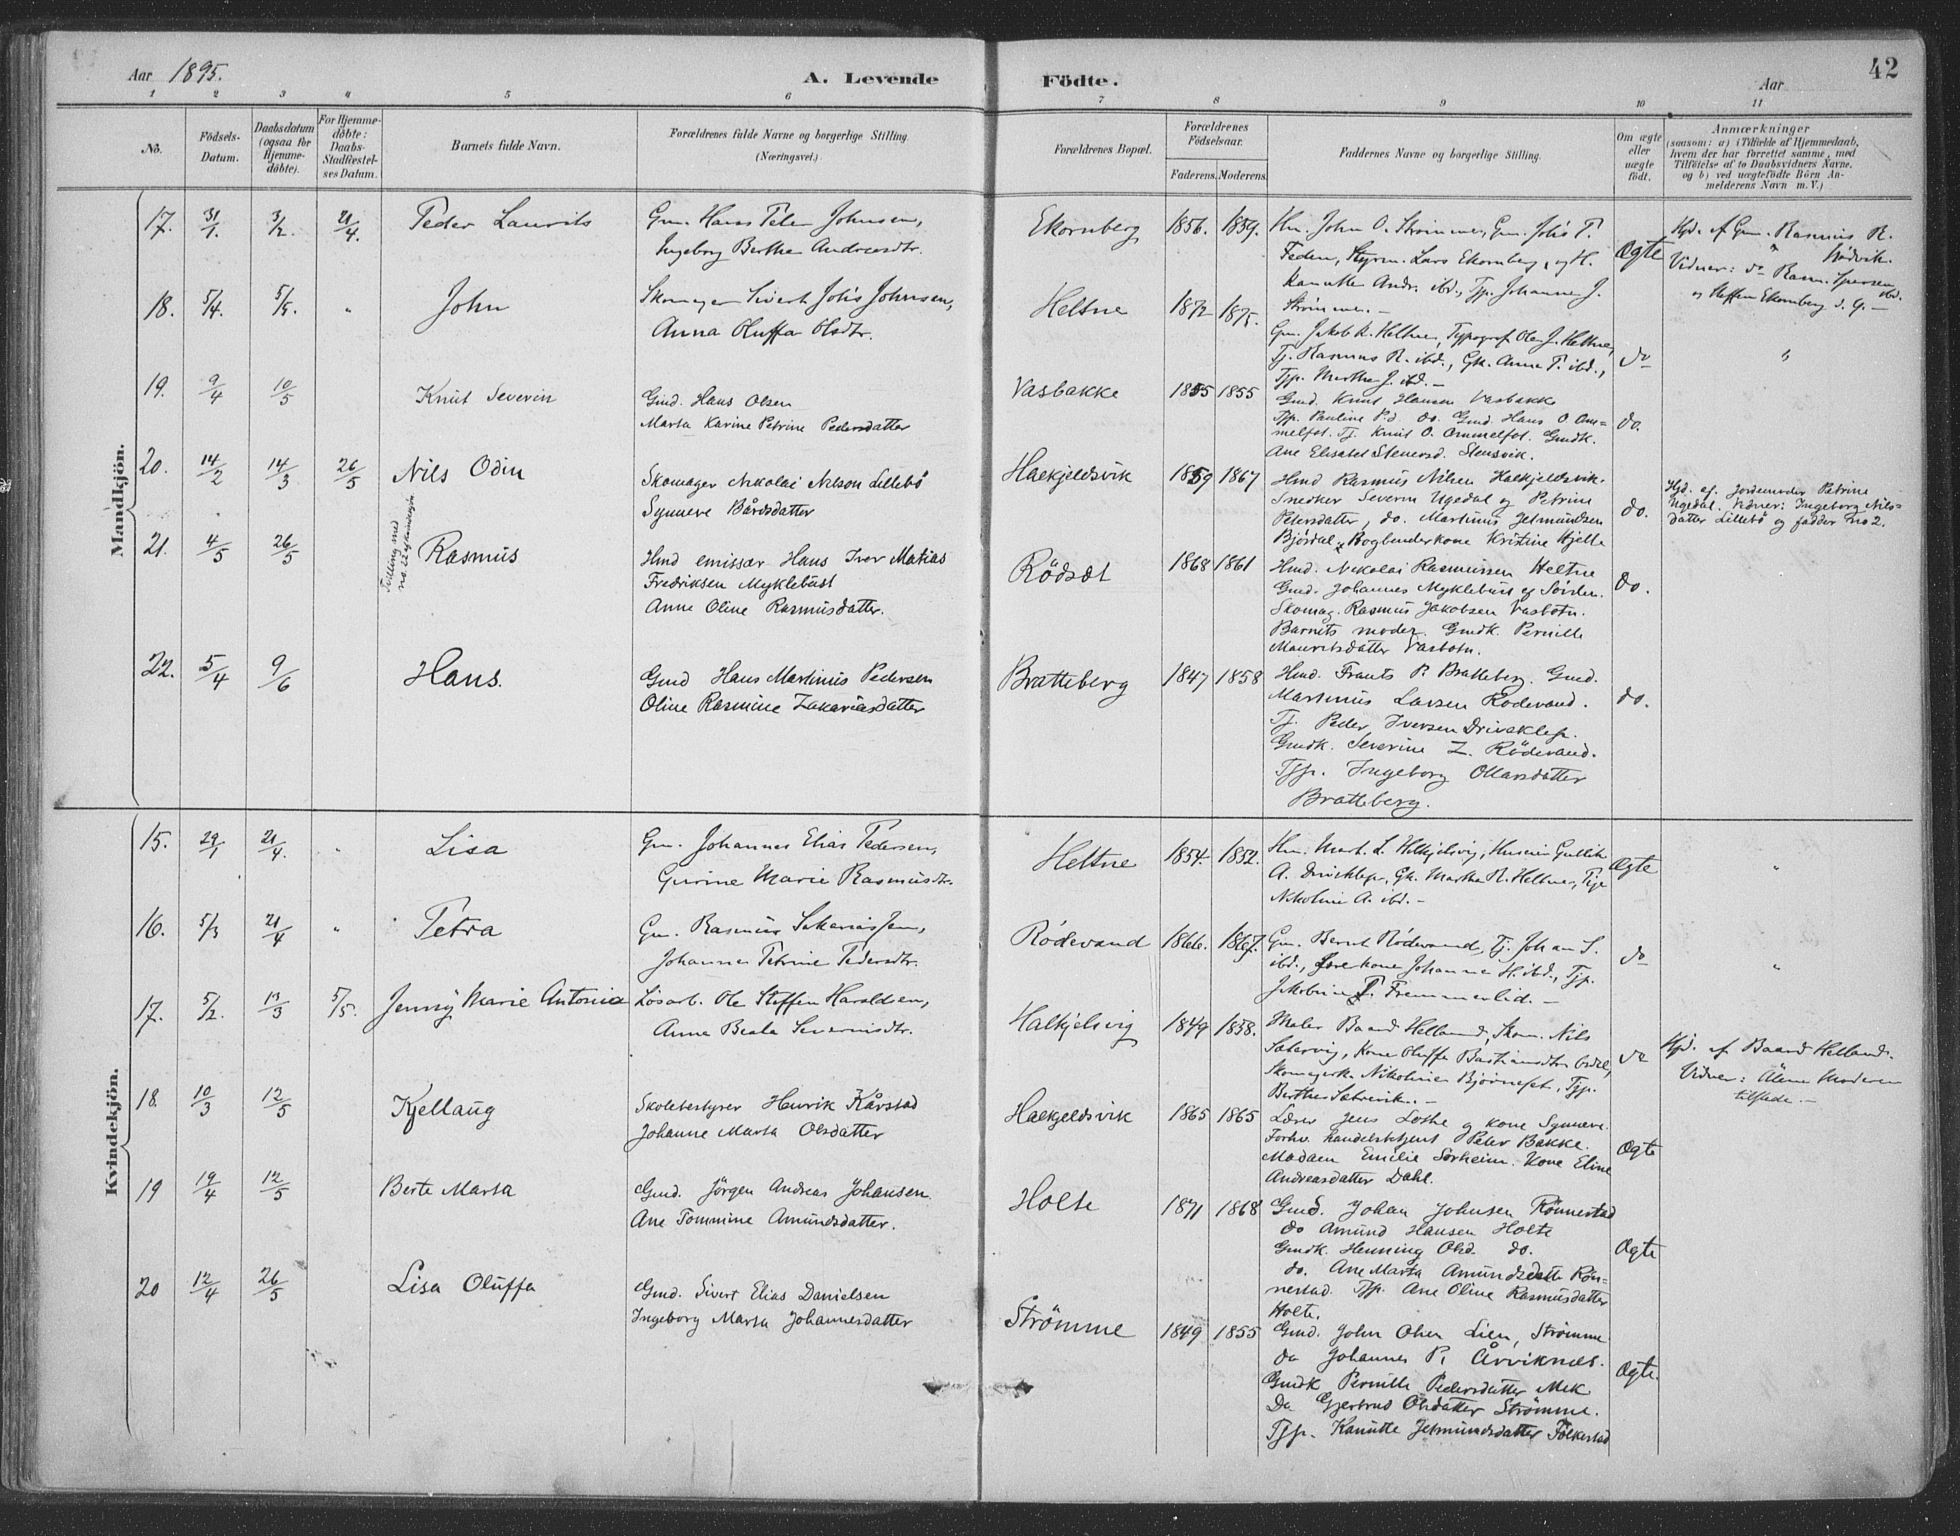 Aar 1895. A. Levende Födte. Aar 42
1 2 3 4 5 6 7 8 9 10 11
No. Födsels-Datum. Daabsdatum (ogsaa for Hjemmedöbte). For Hjemmedöbte: Daabs-Stadfæstelses Datum. Barnets fulde Navn. Forældrenes fulde Navne og borgerlige Stilling. (Næringsvei.) Forældrenes Bopæl. Forældrenes Födselsaar. Faderens. Moderens. Faddernes Navne og borgerlige Stilling. Om ægte eller uægte födt. Anmærkninger (saasom: a) i Tilfælde af Hjemmedaab, hvem der har forrettet samme, med Tilföielse af to Daabsvidners Navne, og b) ved uægtefödte Börn Anmelderens Navn m. V.)
Mandkjön.
17. 31/1. 3/2. 21/4. Peder Laurits Gm. Hans Peter Johnsen, Ekornberg 1856. 1859. Hm. John O. Strömme, Gm. Johs P.
Ingeborg Berthe Andreasdtr. Styrm. Lars Ekornberg, Ægte
Hjd. af Gm. Rasmus R.
Vidner:
Kanutte Andr. ibd., Tjp. Johanne J.
Strömme. -
18. 5/4. 5/5. " John Skomager Sivert Johs Johnsen, Heltne 1872 1875.
Anna Oluffa Olsdtr.
Gm. Jakob K. Heltne, Typograf Ole J. Heltne,
Tj. Rasmus R. ibd., Gk. Anne P. ibd., do "
Tjp. Marthe J. ibd. -
19. 9/4 10/5 Knut Severin Gmd. Hans Olsen Vasbakke 1855 1855 Gmd. Knut Hansen Vasbakke
Marta Karine Petrine Pedersdatter
Tjp. Pauline P.d do. Gmd. Hans O. Om-
melfot. Tj. Knut O. Ommelfot. Gmdk. do.
Ane Elisabet Stenersd. Stensvik.
20. 14/2 14/3 26/5 Nils Odin Skomager Nikolai Nilson Lillebö Haekjeldsvik 1859 1867 Hmd Rasmus Nilsen Haekjeldsvik.
Synneve Bårdsdatter
Snedker Severin Ugedal og Petrine
Petersdatter, do. Martinus Jetmundsen do.
Björdal, Bogbinderkone Kristine Hjelle
Hjd. af. Jordemoder Petrine
Ugedal. Vidner: Ingeborg Nils-
datter Lillebö og fadder no 2.
21. 4/5 26/5 Tvilling med no. 22 Rasmus Hmd emissær Hans Iver Matias Rödsæt 1868 1861 Hmd. Nikolai Rasmussen Heltne
Fredriksen Myklebust Gmd. Johannes Myklebust do.
Anne Oline Rasmusdatter. Skomag. Rasmus Jakobsen Vasbotn.
Barnets moder. Gmdk. Pernille
Mauritsdatter Vasbotn.
22. 5/4 9/6 Hans. Gmd Hans Martinus Pedersen Bratteberg 1847 1858 Hmd. Frants P. Bratteberg. Gmd.
Oline Rasmine Zakariasdatter Martinus Larsen Rödevand. do.
Tj. Peder Iversen Driveklep.
Gmdk. Severine Z. Rödevand.
Tjp. Ingeborg Olarsdatter
Bratteberg.
Kvindekjön.
15. 29/1 21/4. " Lisa Gm. Johannes Elias Pedersen, Heltne 1854. 1852. Hm. Mart. L. Helkjelsvig, Ægte "
Gurine Marie Rasmusdtr. A. Driveklep, Gk. Marthe R. Heltne, Tjp.
Nikoline A. ibd. -
16. 5/3 21/4 " Petra Gm. Rasmus Sakariassen, Rödevand 1866. 1867. Gm. Bernt Rödevand, Tj. Johan S. do "
Johanne Petrine Pedersdtr. ibd., Johanne H. ibd., Tjp.
Jakobine P. Fremmerlid. -
17. 5/2. 13/3 5/5. Jenny Marie Antonie Lösarb. Ole Steffen Haraldsen, Halkjelsvig 1849 1858. Maler Baard Helland, Skom. Nils
Anne Beate Severinsdtr. Kone Oluffa Bastiansdtr. do
Skomagerk. Nikoline Bjørneset, Tjp.
Berthe -
Hjd. af Baard Helland.
Vidner: Alene Moderen
tilstede. -
18. 10/3 12/5 Kjellaug Skolebestyrer Henrik Kårstad Haekjeldsvik 1865 1865 Lærer Jens Lothe og kone Synneve.
Johanne Marta Olsdatter Forhv. handelsbetjent Peter Bakke. Ægte
Madaen Emilie Sørheim. Kone Eline
Andreasdatter Dahl.
19 19/4 12/5 Berte Marta Gmd. Jörgen Andreas Johansen. Holte 1871 1868 Gmd. Johan Johnsen Rönnestad
Ane Tommine Amundsdatter. do Amund Hansen Holte
Gmdk. Henning Olsd. do. Ægte
do. Ane Marta Amundsdatter Rön-
nestad. Tjp. Ane Oline Rasmusdatter
Holte.
20 12/4 26/5 Lisa Oluffa Gmd. Sivert Elias Danielsen Strömme 1849 1855 Gmd. John Olsen Lien, Strömme
Ingeborg Marta Johannesdatter do Johannes P. Årviknes. Ægte.
Gmdk Pernille Pedersdatter Mek
Do Gjertrud Olsdatter Strömme.
Tjp. Kanutte Jetmundsdatter Folkestad